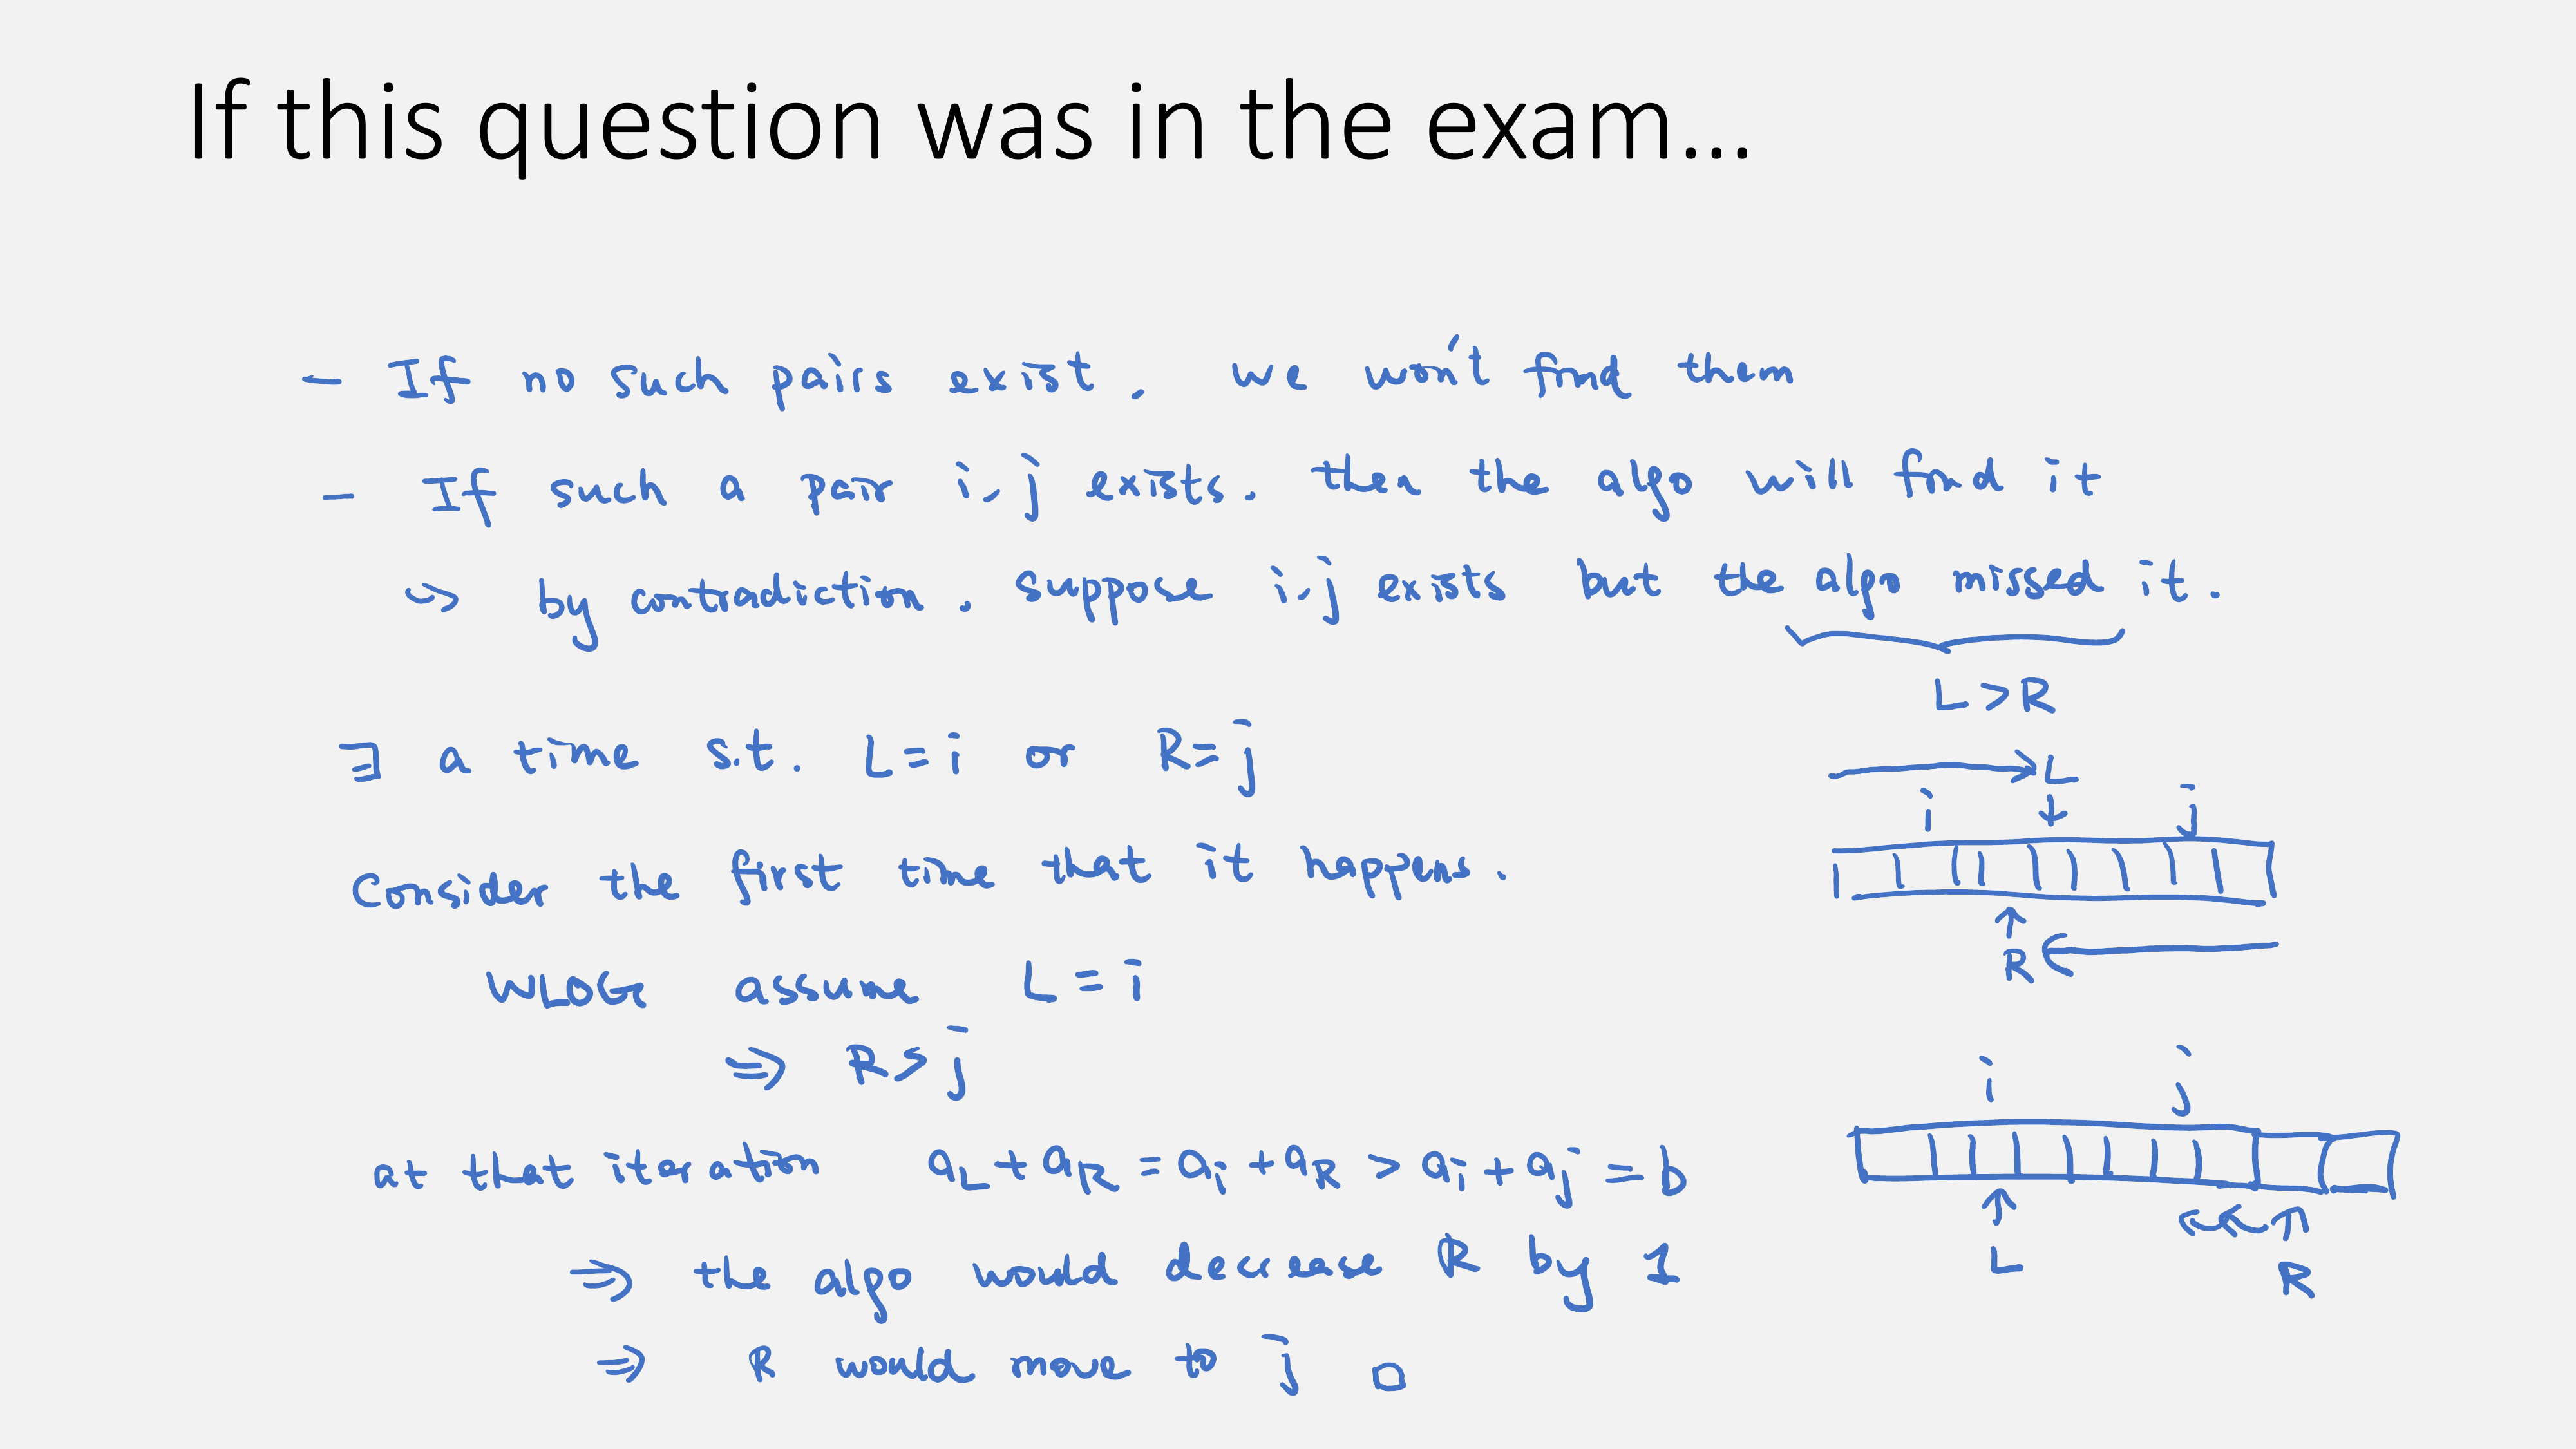 If this question was in the exam...
- If no such pairs exist, we won't find them
- If such a pair i, j exists, then the algo will find it
↪ by contradiction, suppose i, j exists but the algo missed it.
L > R
∃ a time s.t. L = i or R = j
L
i ↓ j
Consider the first time that it happens.
↑
R
WLOG assume L = i
⇒ R > j
i j
at that iteration a_L + a_R = a_i + a_R > a_i + a_j = b
↑ ↑
L R
⇒ the algo would decrease R by 1
⇒ R would move to j □